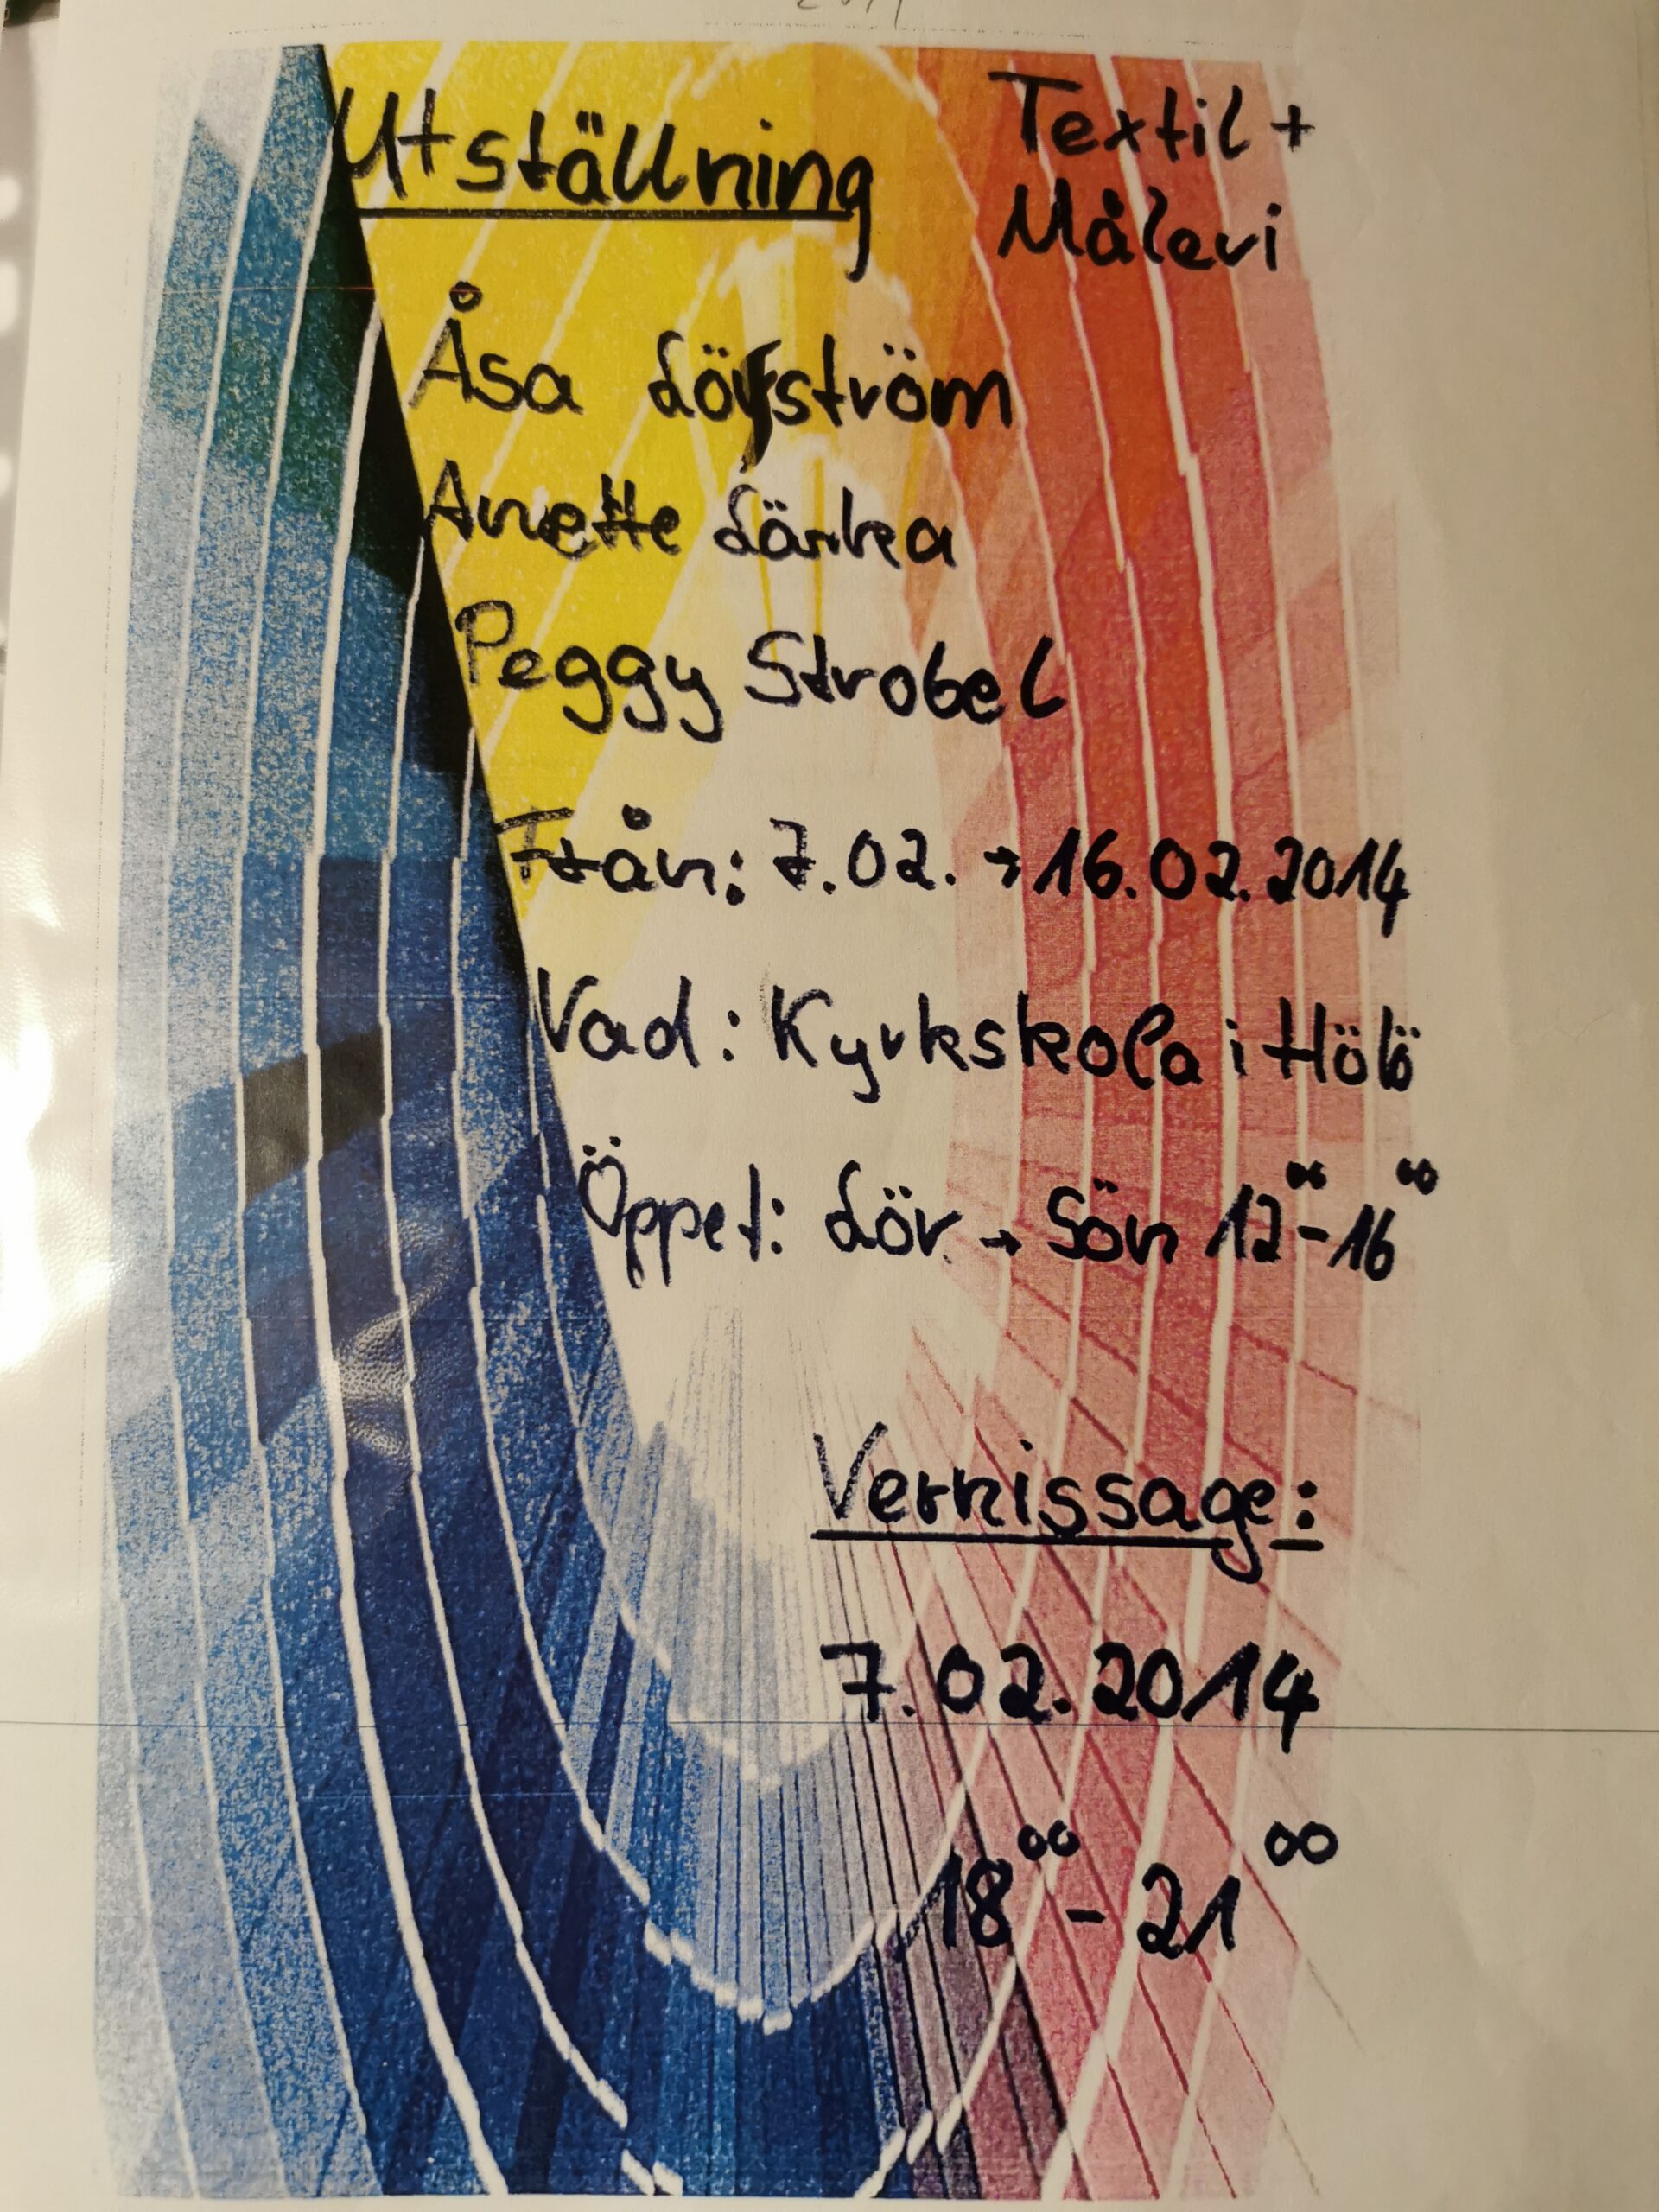 Utställning
Textil +
Måleri
Åsa Löfström
Anette Länka
Peggy Strobel
Från: 7.02. → 16.02.2014
Vad: Kyrkskola i Hölö
Öppet: Lör → Sön 12⁰⁰-16⁰⁰
Vernissage:
7.02.2014
18⁰⁰ - 21⁰⁰